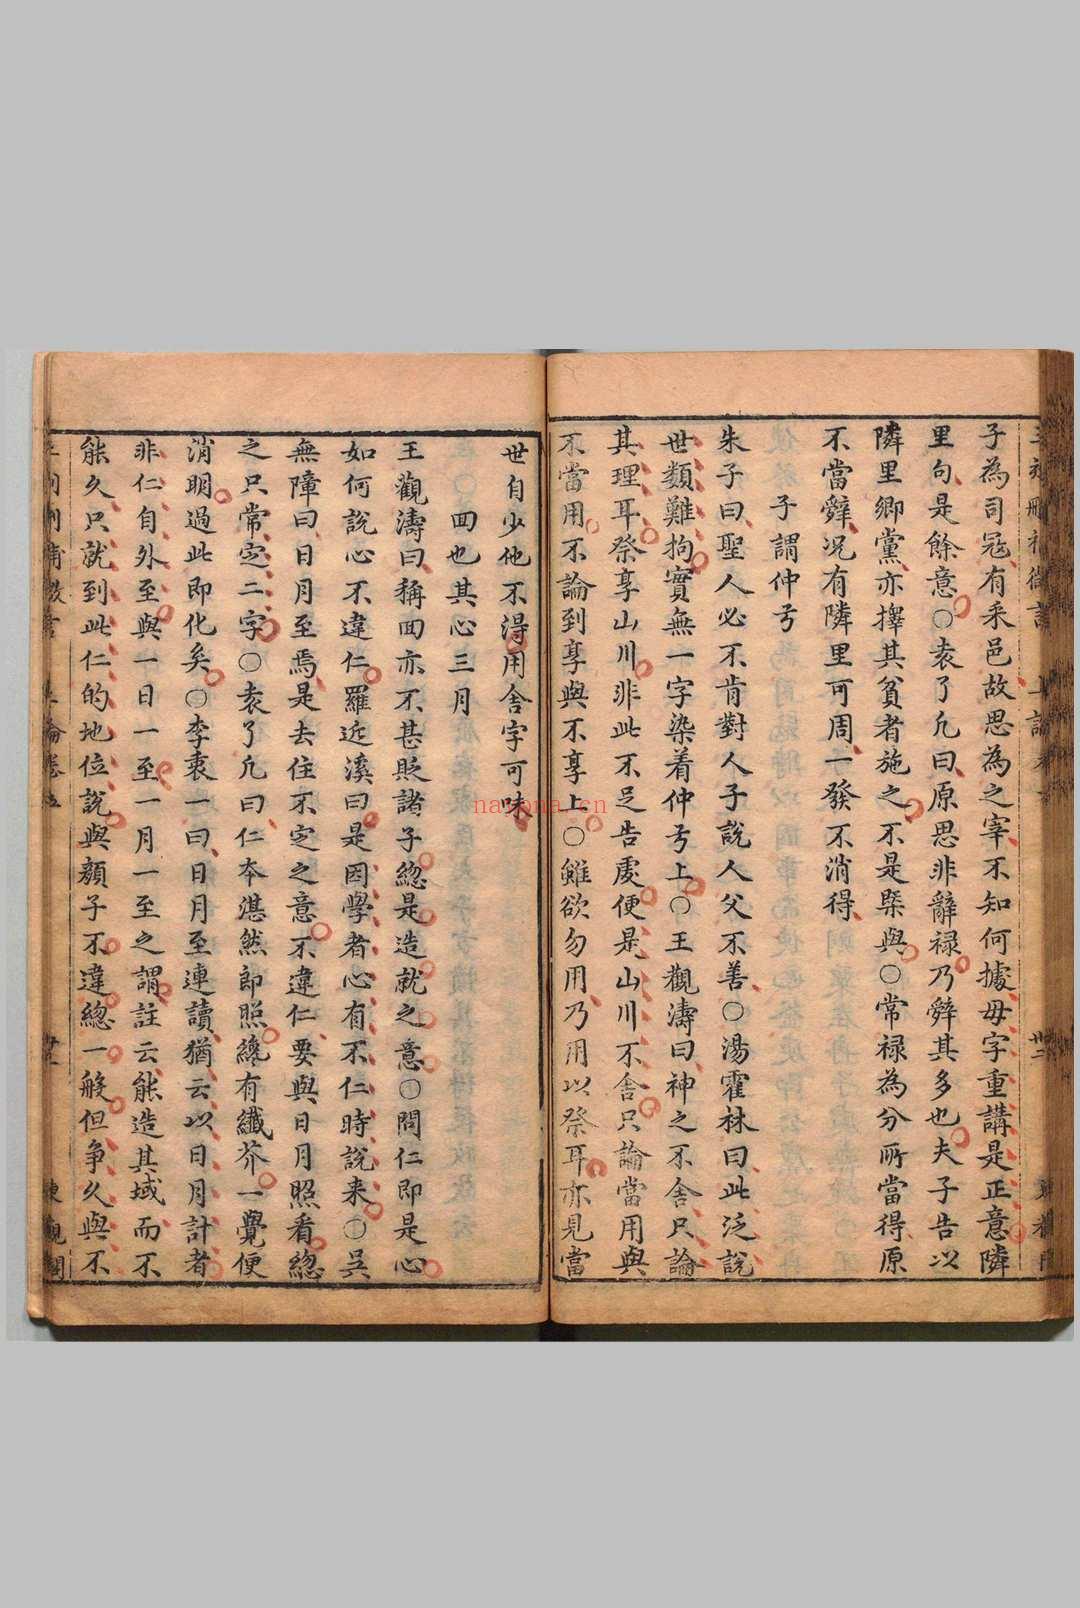 子為司冦有采邑故思為之宰不知何據毋字重講是正意隣
里句是餘意○袁了凡曰原思非辭禄乃辤其多也夫子告以
隣里鄉黨亦擇其貧者施之不是槩與○常禄為分所當得原
不當辤况有隣里可周一發不消得
子謂仲弓
朱子曰聖人必不肯對人子說人父不善○湯霍林曰此泛說
世類難拘實無一字染着仲弓上○王觀濤曰神之不舍只論
其理耳祭享山川非此不足告䖍便是山川不舍只論當用與
不當用不論到享與不享上○雖欲勿用乃用以祭耳亦見當
世自少他不得用舍字可味
回也其心三月
王觀濤曰稱回亦不甚貶諸子緫是造就之意○問仁即是心
如何說心不違仁羅近溪曰是因學者心有不仁時說来○吳
無障曰日月至焉是去住不定之意不違仁要與日月照看緫
之只常定二字○袁了凡曰仁本湛然即照纔有纖芥一覺便
消明過此即化矣○李衷一曰日月至連讀猶云以日月計者
非仁自外至與一日一至一月一至之謂註云能造其域而不
能久只就到此仁的地位說與顏子不違緫一般但争久與不
nayona.cn